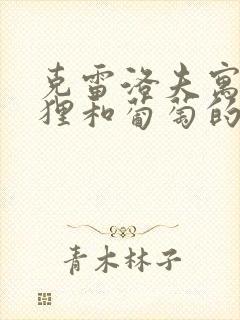 克雷洛夫寓
狸和葡萄的
青木林子